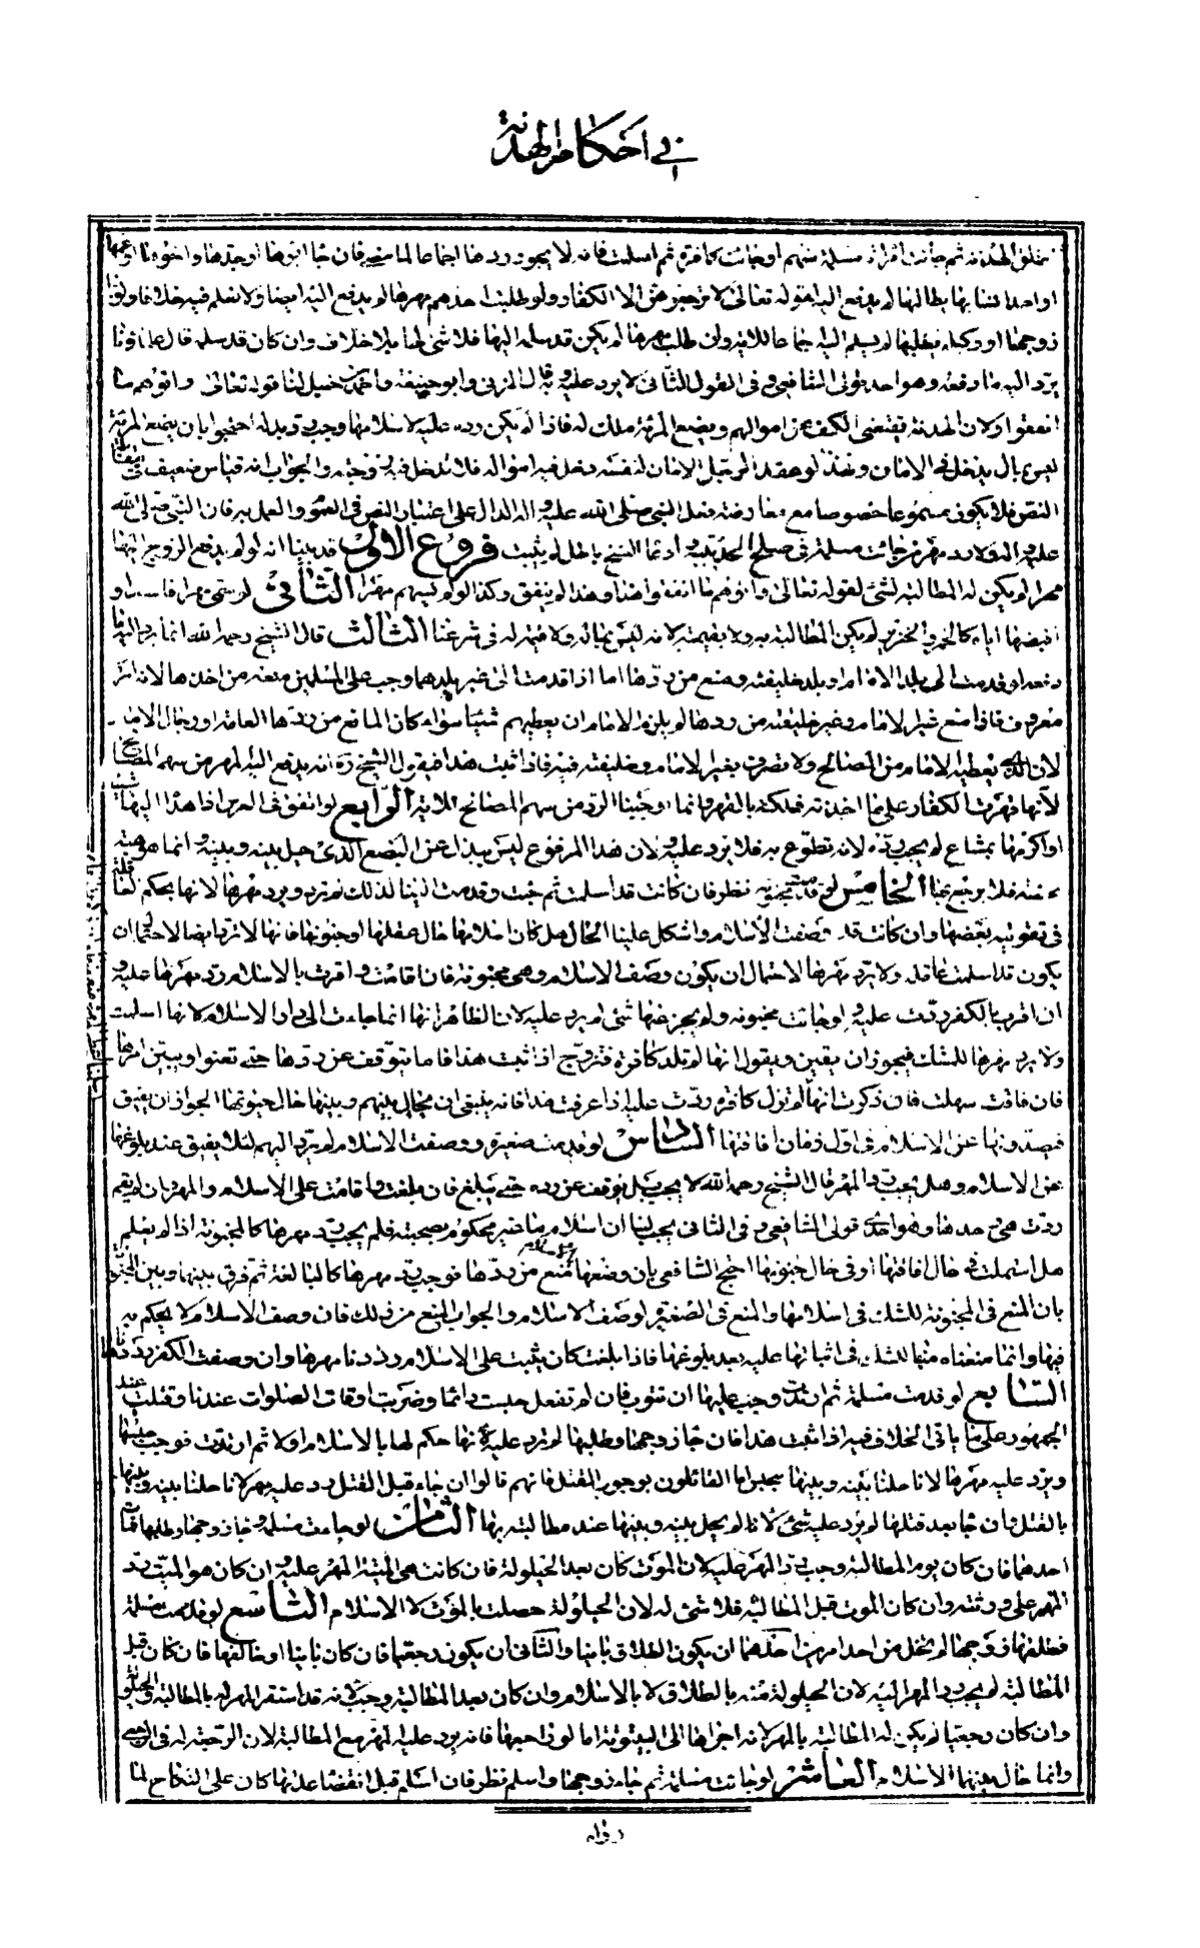 في احكام الهدنة
مطلق الهدنة ثم جاءت امرأة مسلمة منهم او جاءت كافرة ثم اسلمت فانه لا يجوز ردها اجماعا لما مضى فان جاء ابوها او جدها او اخوها او عمها
او احد انسابها يطالبها لم يدفع اليه لقوله تعالى لا ترجعوهن الى الكفار ولو طلب احدهم مهرها لم يدفع اليه ايضا ولا نعلم فيه خلافا ولو جاء
زوجها او وكيله فطلبها لم يسلم اليه اجماعا للآية وان طلب مهرها لم يكن قد سلمه اليها فلا شئ لها بلا خلاف وان كان قد سلمه قال علماؤنا
يرد اليه ما دفعه وهو احد قولى الشافعي و في القول الثاني لا يرد عليه وبه قال المزني وابو حنيفة واحمد بن حنبل لنا قوله تعالى واتوهم ما
انفقوا ولان الهدنة تقتضي الكف عن اموالهم وبضع المرأة ملك له فاذا لم يكن رده عليه لاسلامها وجب رد بدله احتجوا بان بضع المرأة
ليس بمال يدخل في الامان ولهذا لو عقد الرجل الامان لنفسه دخل فيه امواله فلا تدخل فيه زوجته والجواب انه قياس ضعيف في مقابلة
النص فلا يكون مسموعا خصوصا مع معارضة فعل النبي صلى الله عليه واله الدال على اعتبار النص في العموم والعمل به فان النبي صلى الله
عليه واله رد مهر من جاءت مسلمة في صلح الحديبية وادعاء النسخ باطل لم يثبت فروع الاول قد بينا انه لو لم يدفع الزوج اليها
مهرا لم يكن له المطالبة لشئ لقوله تعالى واتوهم ما انفقوا وهذا لم ينفق وكذا لو لم يسم لها مهرا الثاني لو سمى مهرا فاسدا و
اقبضها اياه كالخمر والخنزير لم يكن له المطالبة به ولا بقيمته لانه ليس بمال ولا قيمة له في شرعنا الثالث قال الشيخ رحمه الله انما يرد اليه ما
دفعه لو قدمت الى بلد الامام او بلد خليفته ومنع من ردها اما اذا قدمت الى غير بلدهما وجب على المسلمين منعه من اخذها لانه امر
معروف فاذا منع غير الامام وغير خليفته من ردها لم يلزم الامام ان يعطيهم شيئا سواء كان المانع من ردها العامة او رجال الامام
لان البدل يعطيه الامام من المصالح ولا تصرف بغير الامام وخليفته فيه فاذا ثبت هذا فيقول الشيخ ره انه يدفع اليه المهر من سهم المصالح
لانها قهرت الكفار على ما اخذته فملكته بالقهر وانما اوجبنا الرد من سهم المصالح للاية الرابع لو انفق في العرس اذا هداها اليها
او اكرمها بمتاع لم يجب رده لانه تطوع به فلا يرد عليه ولان هذا المرفوع ليس ببدل عن البضع الذي حيل بينه وبينه وانما هو هبة
منه فلا يرجع بها الخامس لو قدمت مجنونة نظر فان كانت قد اسلمت ثم جنت وقدمت الينا لذلك لم ترد ويرد مهرها لانها بحكم
في تفويته بضعها وان كانت قد وصفت الاسلام واشكل علينا الحال هل كان اسلامها حال عقلها او جنونها فانها لا ترد ايضا لاحتمال ان
يكون قد اسلمت عاقلة ولا يرد مهرها لاحتمال ان يكون وصف الاسلام وهي مجنونة فان افاقت واقرت بالاسلام رد مهرها عليه و
ان اقرت بالكفر ردت عليه ولو جاءت مجنونة ولم يخبر عنها شئ لم يرد عليه لان الظاهر انها انما جاءت الى دار الاسلام لانها اسلمت
ولا يرد مهرها للشك فيجوز ان يفيق ويقول انها لم تزل كافرة فترد ح اذا ثبت هذا فاما يتوقف عن ردها حتى تفيق ويبين امرها
فان افاقت سئلت فان ذكرت انها لم تزل كافرة ردت عليه اذا عرفت هذا فانه ينبغي ان يحال بينهم وبينها حال جنونها لجواز ان يفيق
فيصدونها عن الاسلام في اول زمان افاقتها السادس لو قدمت صغيرة ووصفت الاسلام لم يرد اليهم لئلا يفتتن عند بلوغها
عن الاسلام وهل يجب رد المهر قال الشيخ رحمه الله لا يجب بل يتوقف عن رده حتى يبلغ فان بلغت واقامت على الاسلام رد المهر وان لم يقم
ردت هي وحدها وهو احد قولى الشافعي و في الثاني يجب لنا ان اسلامها غير محكوم بصحته فلم يجب رد مهرها كالمجنونة اذا لم يعلم
هل اسلمت في حال افاقتها او في حال جنونها احتج الشافعي بان وصفها الاسلام منع من ردها فوجب رد مهرها كالبالغة ثم فرق بينها وبين المجنونة
بان المنع في المجنونة للشك في اسلامها والمنع في الصغيرة لوصف الاسلام والجواب المنع من ذلك فان وصف الاسلام لا يحكم به
فيها وانما منعناه منها للشك في اثباتها عليه بعد بلوغها فاذا بلغت كان يثبت على الاسلام رددنا مهرها وان وصفت الكفر رددناها
السابع لو قدمت مسلمة ثم ارتدت وجب عليها ان تتوب فان لم تفعل حبست دائما وضربت اوقات الصلوات عندنا وقتلت عند
الجمهور على ما ياتي الخلاف فيه اذا ثبت هذا فان جاء زوجها وطلبها لم ترد عليه لانها حكم لها بالاسلام اولا ثم ارتدت فوجب حبسها
ويرد عليه مهرها لانا حلنا بينه وبينها بحبس اما القائلون بوجوب القتل فانهم قالوا ان جاء قبل القتل رد عليه مهرها لانا حلنا بينه وبينها
بالقتل وان جاء بعد قتلها لم يرد عليه شئ لانا لم يحل بينه وبينها عند مطالبته بها الثامن لو جاءت مسلمة وجاء زوجها وطلبها فمات
احدهما فان كان يوم المطالبة وجب رد المهر عليه لان الموت كان بعد الحيلولة فان كانت هي الميتة المهر عليه وان كان هو الميت رد
المهر على ورثته وان كان الموت قبل المطالبة فلا شئ له لان الحيلولة حصلت بالموت لا الاسلام التاسع لو قدمت مسلمة
فطلقها زوجها لم يخل من احد امرين احدهما ان يكون الطلاق باينا والثاني ان يكون رجعيا فان كان باينا او خالعها فان كان قبل
المطالبة لم يجب رد المهر اليه لان الحيلولة منه بالطلاق لا بالاسلام وان كان بعد المطالبة وجب لانه قد استقر المهر له بالمطالبة والحيلولة
وان كان رجعيا لم يكن له المطالبة بالمهر لانه اجراها الى البينونة اما لو راجعها فانه يرد عليه المهر مع المطالبة لان الرجعة له في الرجعي
وانما حال بينهما الاسلام العاشر لو جاءت مسلمة ثم جاء زوجها واسلم نظر فان اسلم قبل انقضاء عدتها كان على النكاح لما